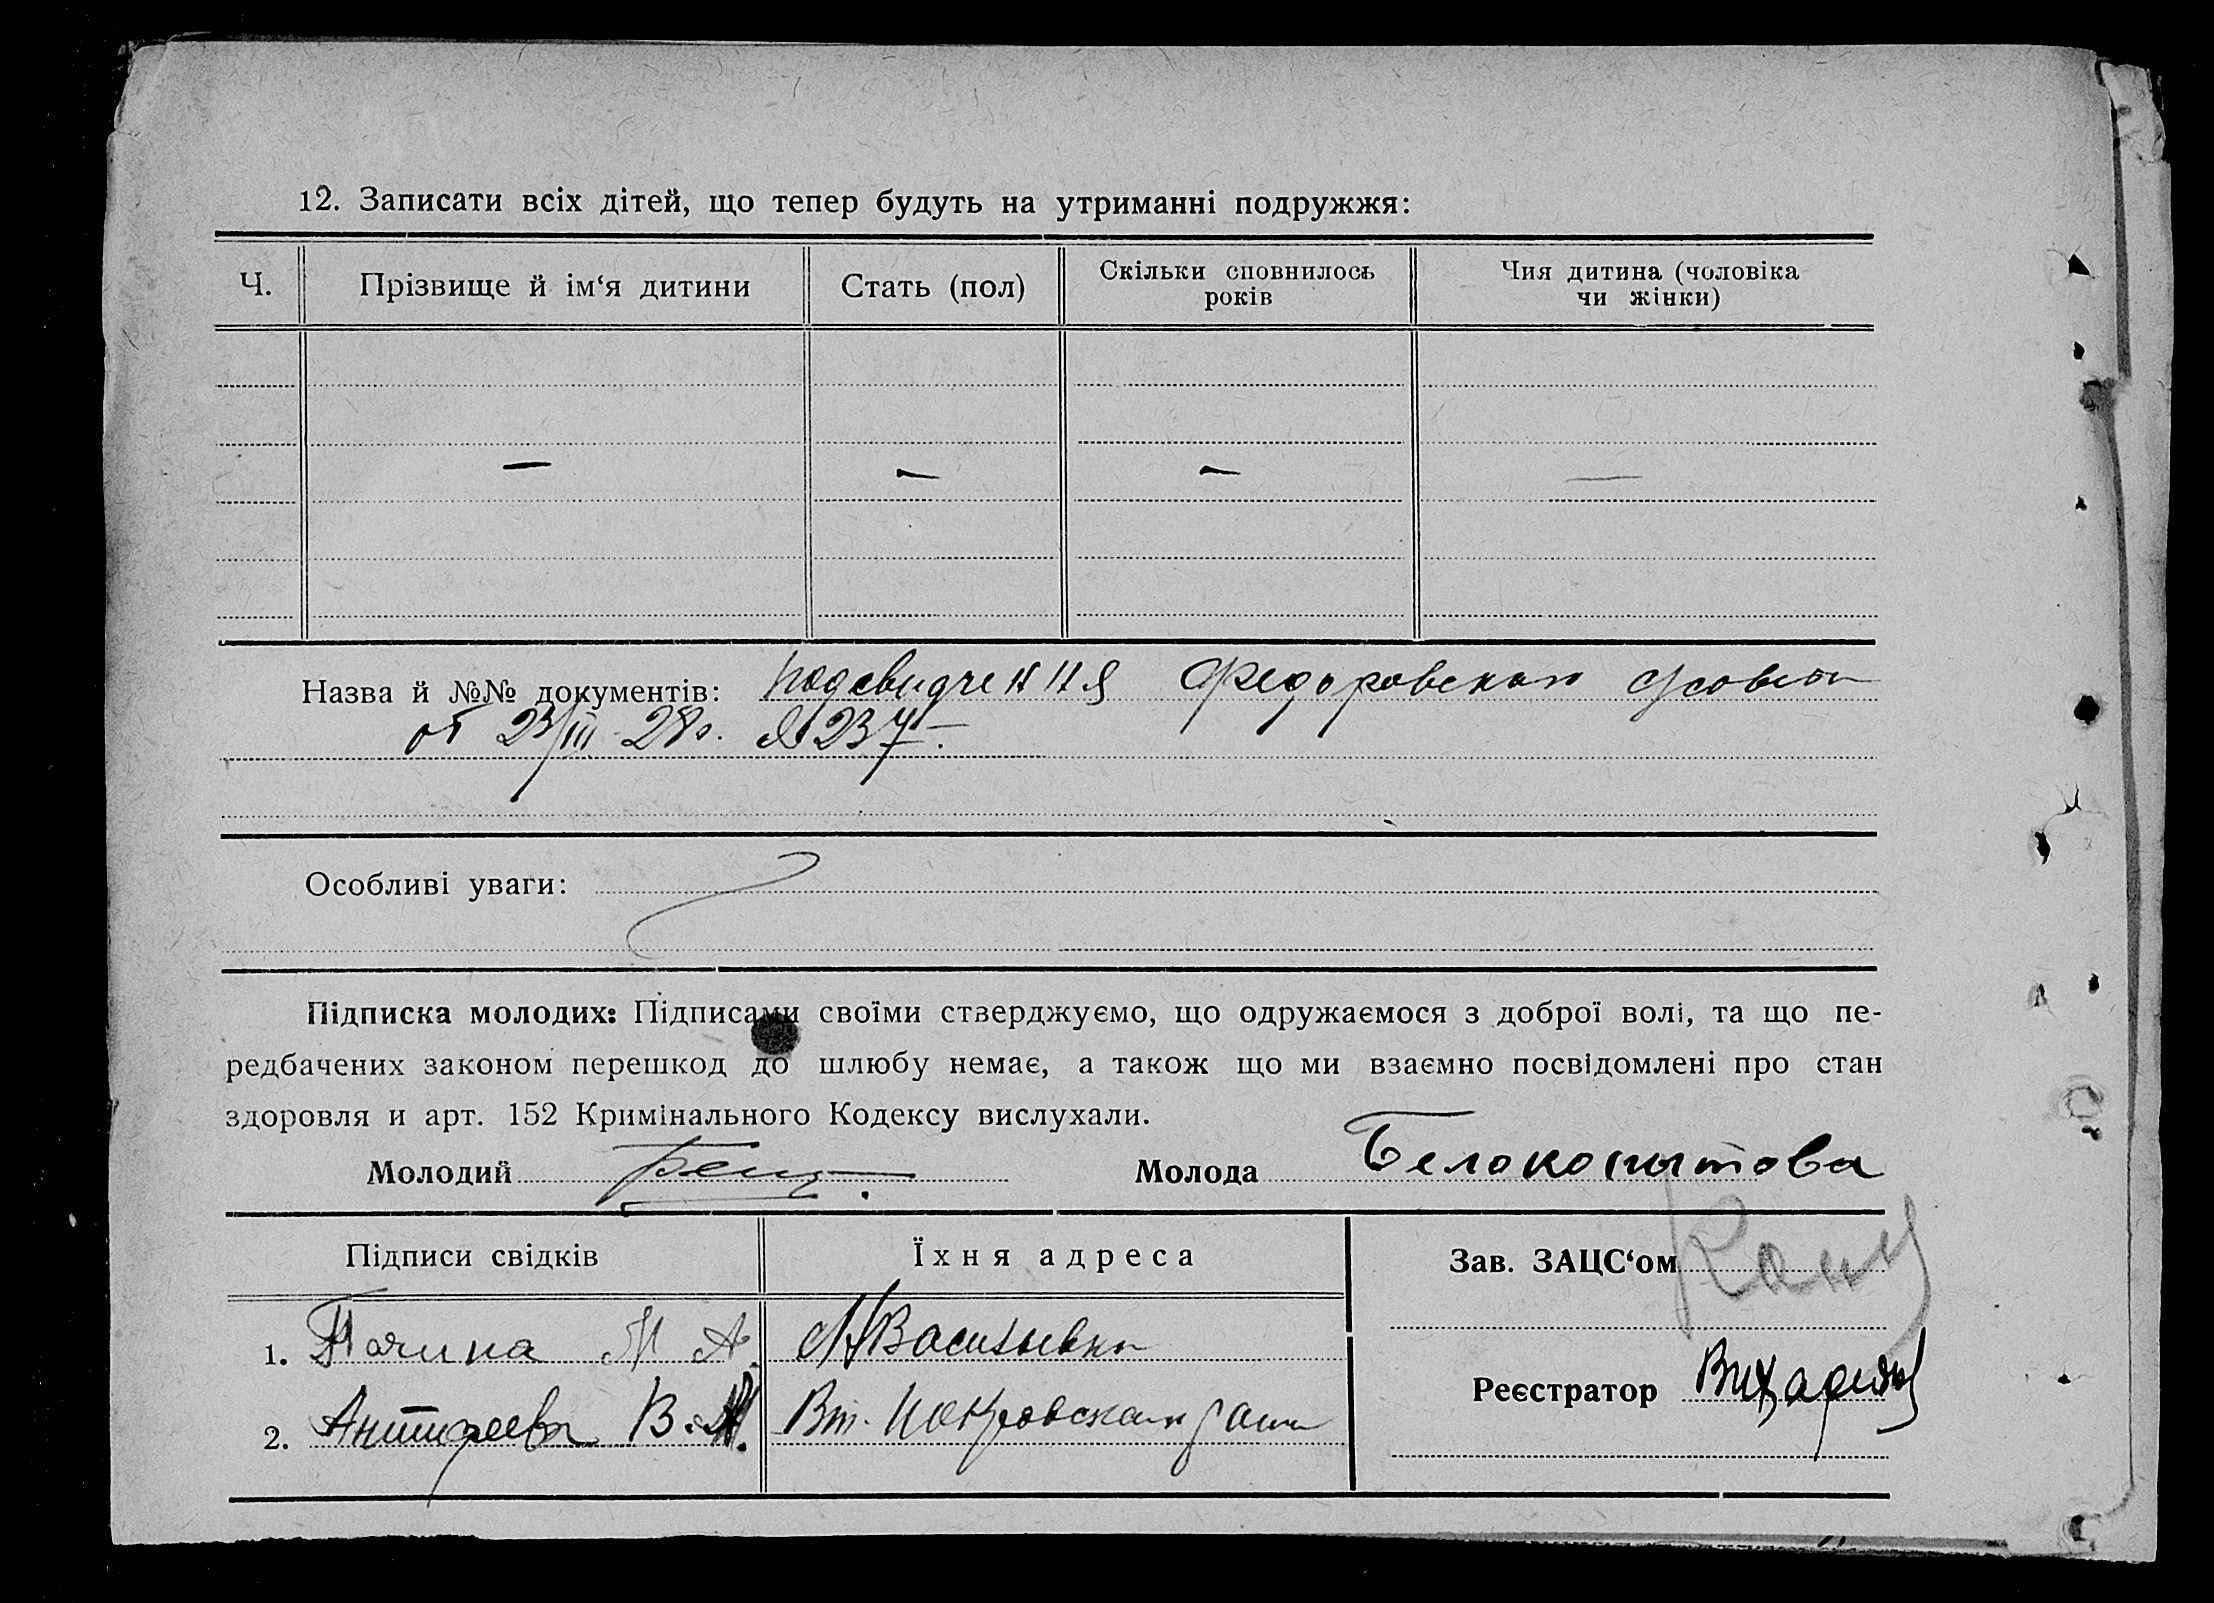 12. Записати всіх дітей, що тепер будуть на утриманні подружжя:
Ч. Прізвище й ім‘я дитини Стать (пол) Скільки сповнилось років Чия дитина (чоловіка чи жінки)
— — — —
Назва й №№ документів: подсвидчення Федоровской
от 23/III 28г. № 237.
Особливі уваги:
Підписка молодих: Підписами своїми стверджуємо, що одружаємося з доброї волі, та що пе-
редбачених законом перешкод до шлюбу немає, а також що ми взаємно посвідомлені про стан
здоровля и арт. 152 Кримінального Кодексу вислухали.
Молодий Молода Белокопытова
Підписи свідків Їхня адреса Зав. ЗАЦС‘ом
1. М А. Васильевка
2. Антифеева В. Реєстратор